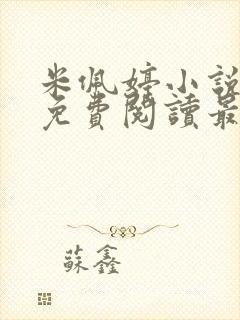 米佩婷小說
免費閱讀最
蘇鑫